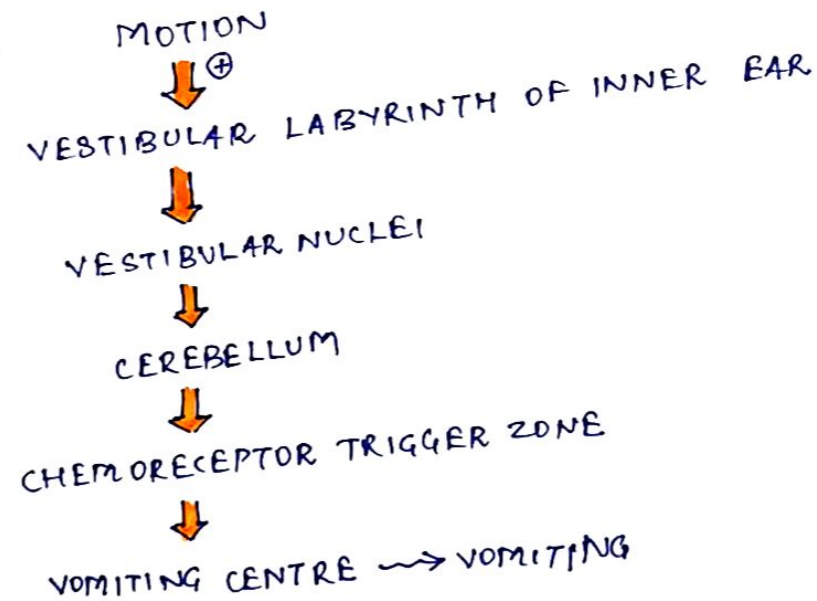 MOTION
⊕
VESTIBULAR LABYRINTH OF INNER EAR
VESTIBULAR NUCLEI
CEREBELLUM
CHEMORECEPTOR TRIGGER ZONE
VOMITING CENTRE → VOMITING